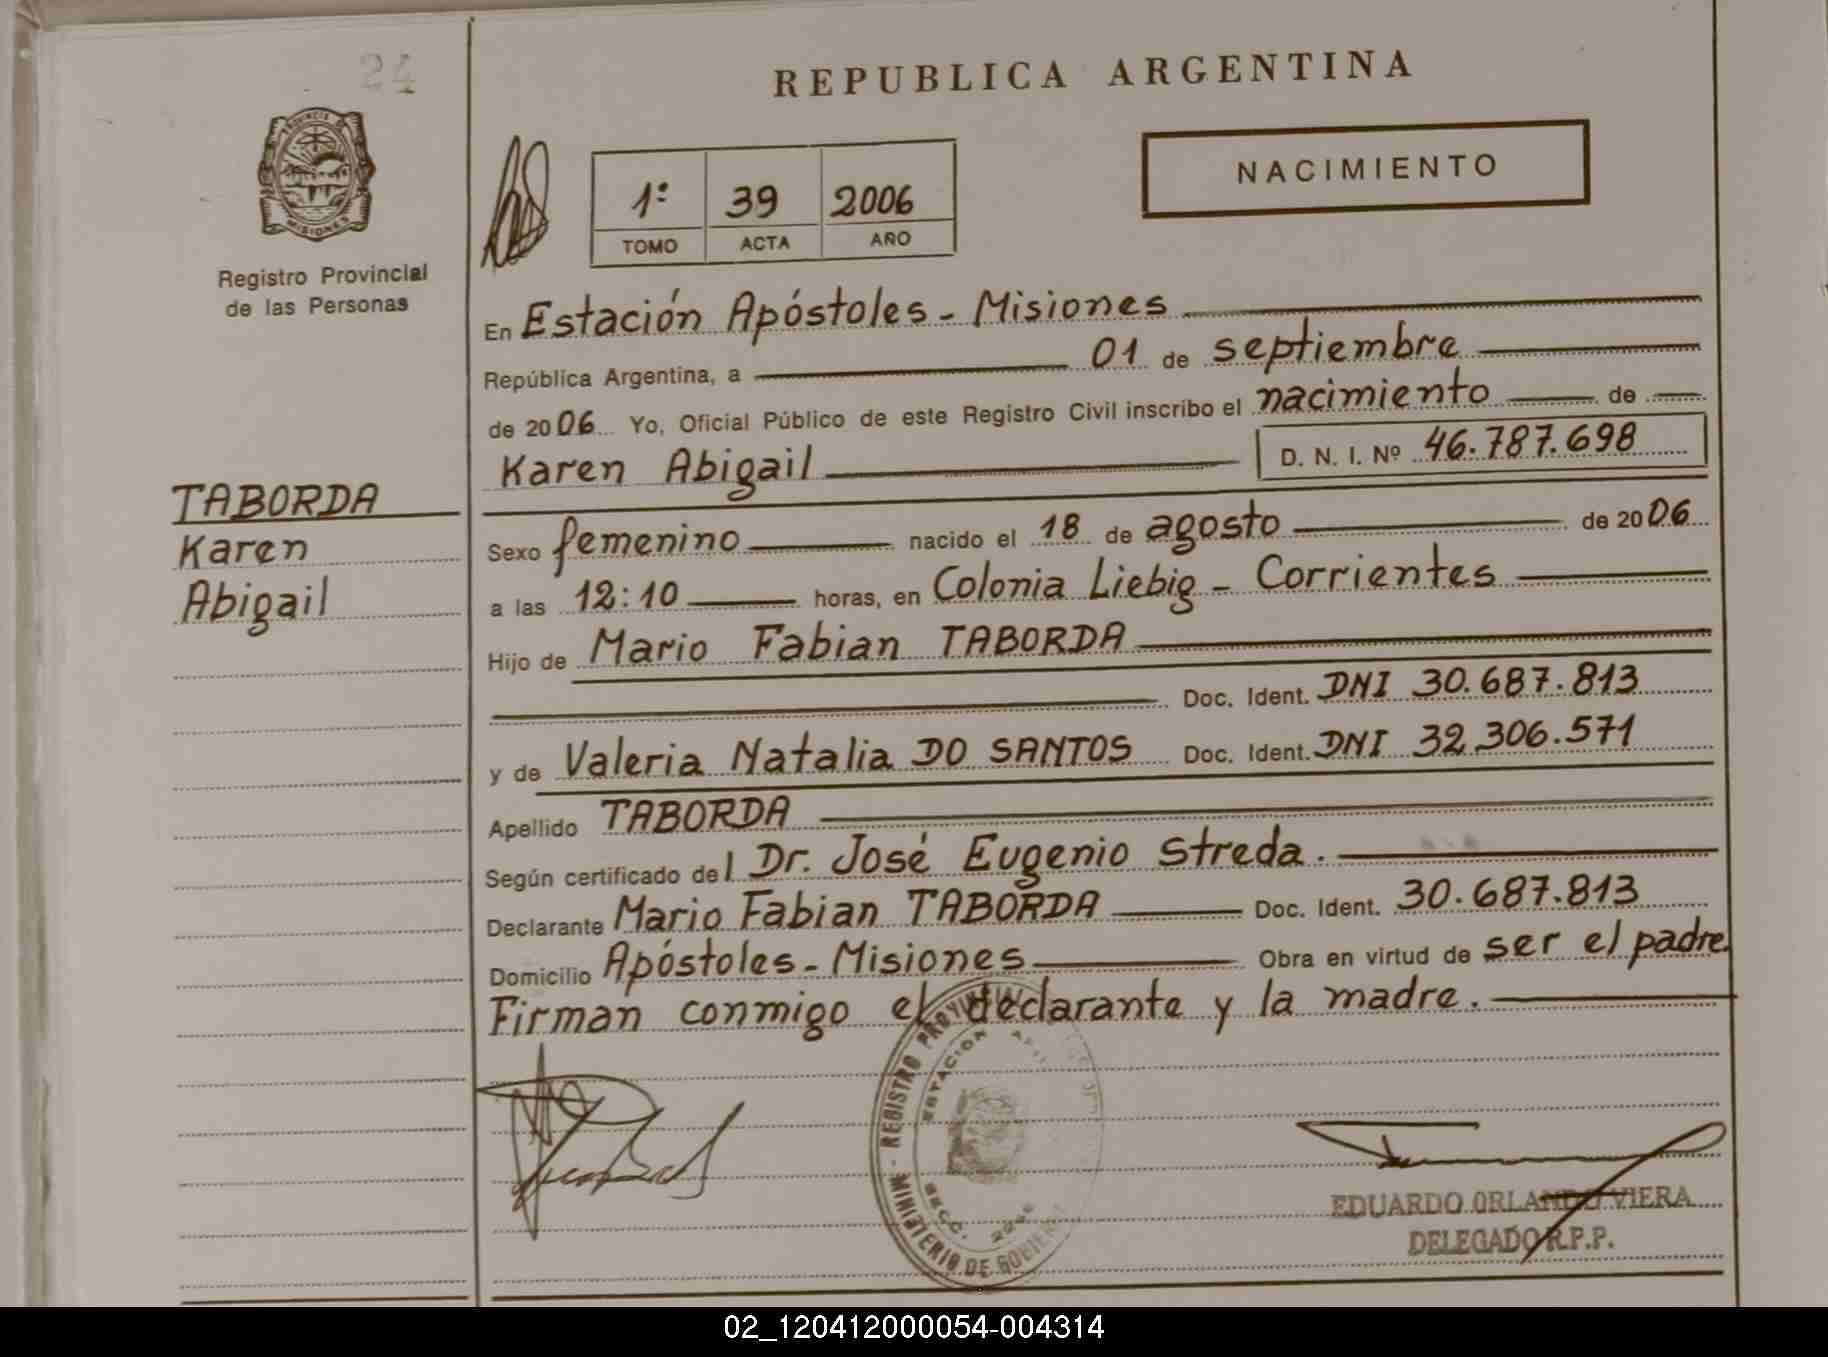 24
REPUBLICA ARGENTINA
PROVINCIA DE
MISIONES
Registro Provincial
de las Personas
1º 39 2006
TOMO ACTA AÑO
NACIMIENTO
En Estación Apóstoles - Misiones
República Argentina, a 01 de septiembre
de 2006 Yo, Oficial Público de este Registro Civil inscribo el nacimiento de
Karen Abigail D. N. I. Nº 46.787.698
TABORDA
Karen
Abigail
Sexo femenino nacido el 18 de agosto de 2006
a las 12:10 horas, en Colonia Liebig - Corrientes
Hijo de Mario Fabian TABORDA
Doc. Ident. DNI 30.687.813
y de Valeria Natalia DO SANTOS Doc. Ident. DNI 32.306.571
Apellido TABORDA
Según certificado del Dr. José Eugenio Streda.
Declarante Mario Fabian TABORDA Doc. Ident. 30.687.813
Domicilio Apóstoles - Misiones Obra en virtud de ser el padre
Firman conmigo el declarante y la madre.
MINISTERIO DE GOBIERNO - REGISTRO PROVINCIAL
ESTACION
SECC.
EDUARDO ORLANDO VIERA
DELEGADO R.P.P.
02_120412000054-004314